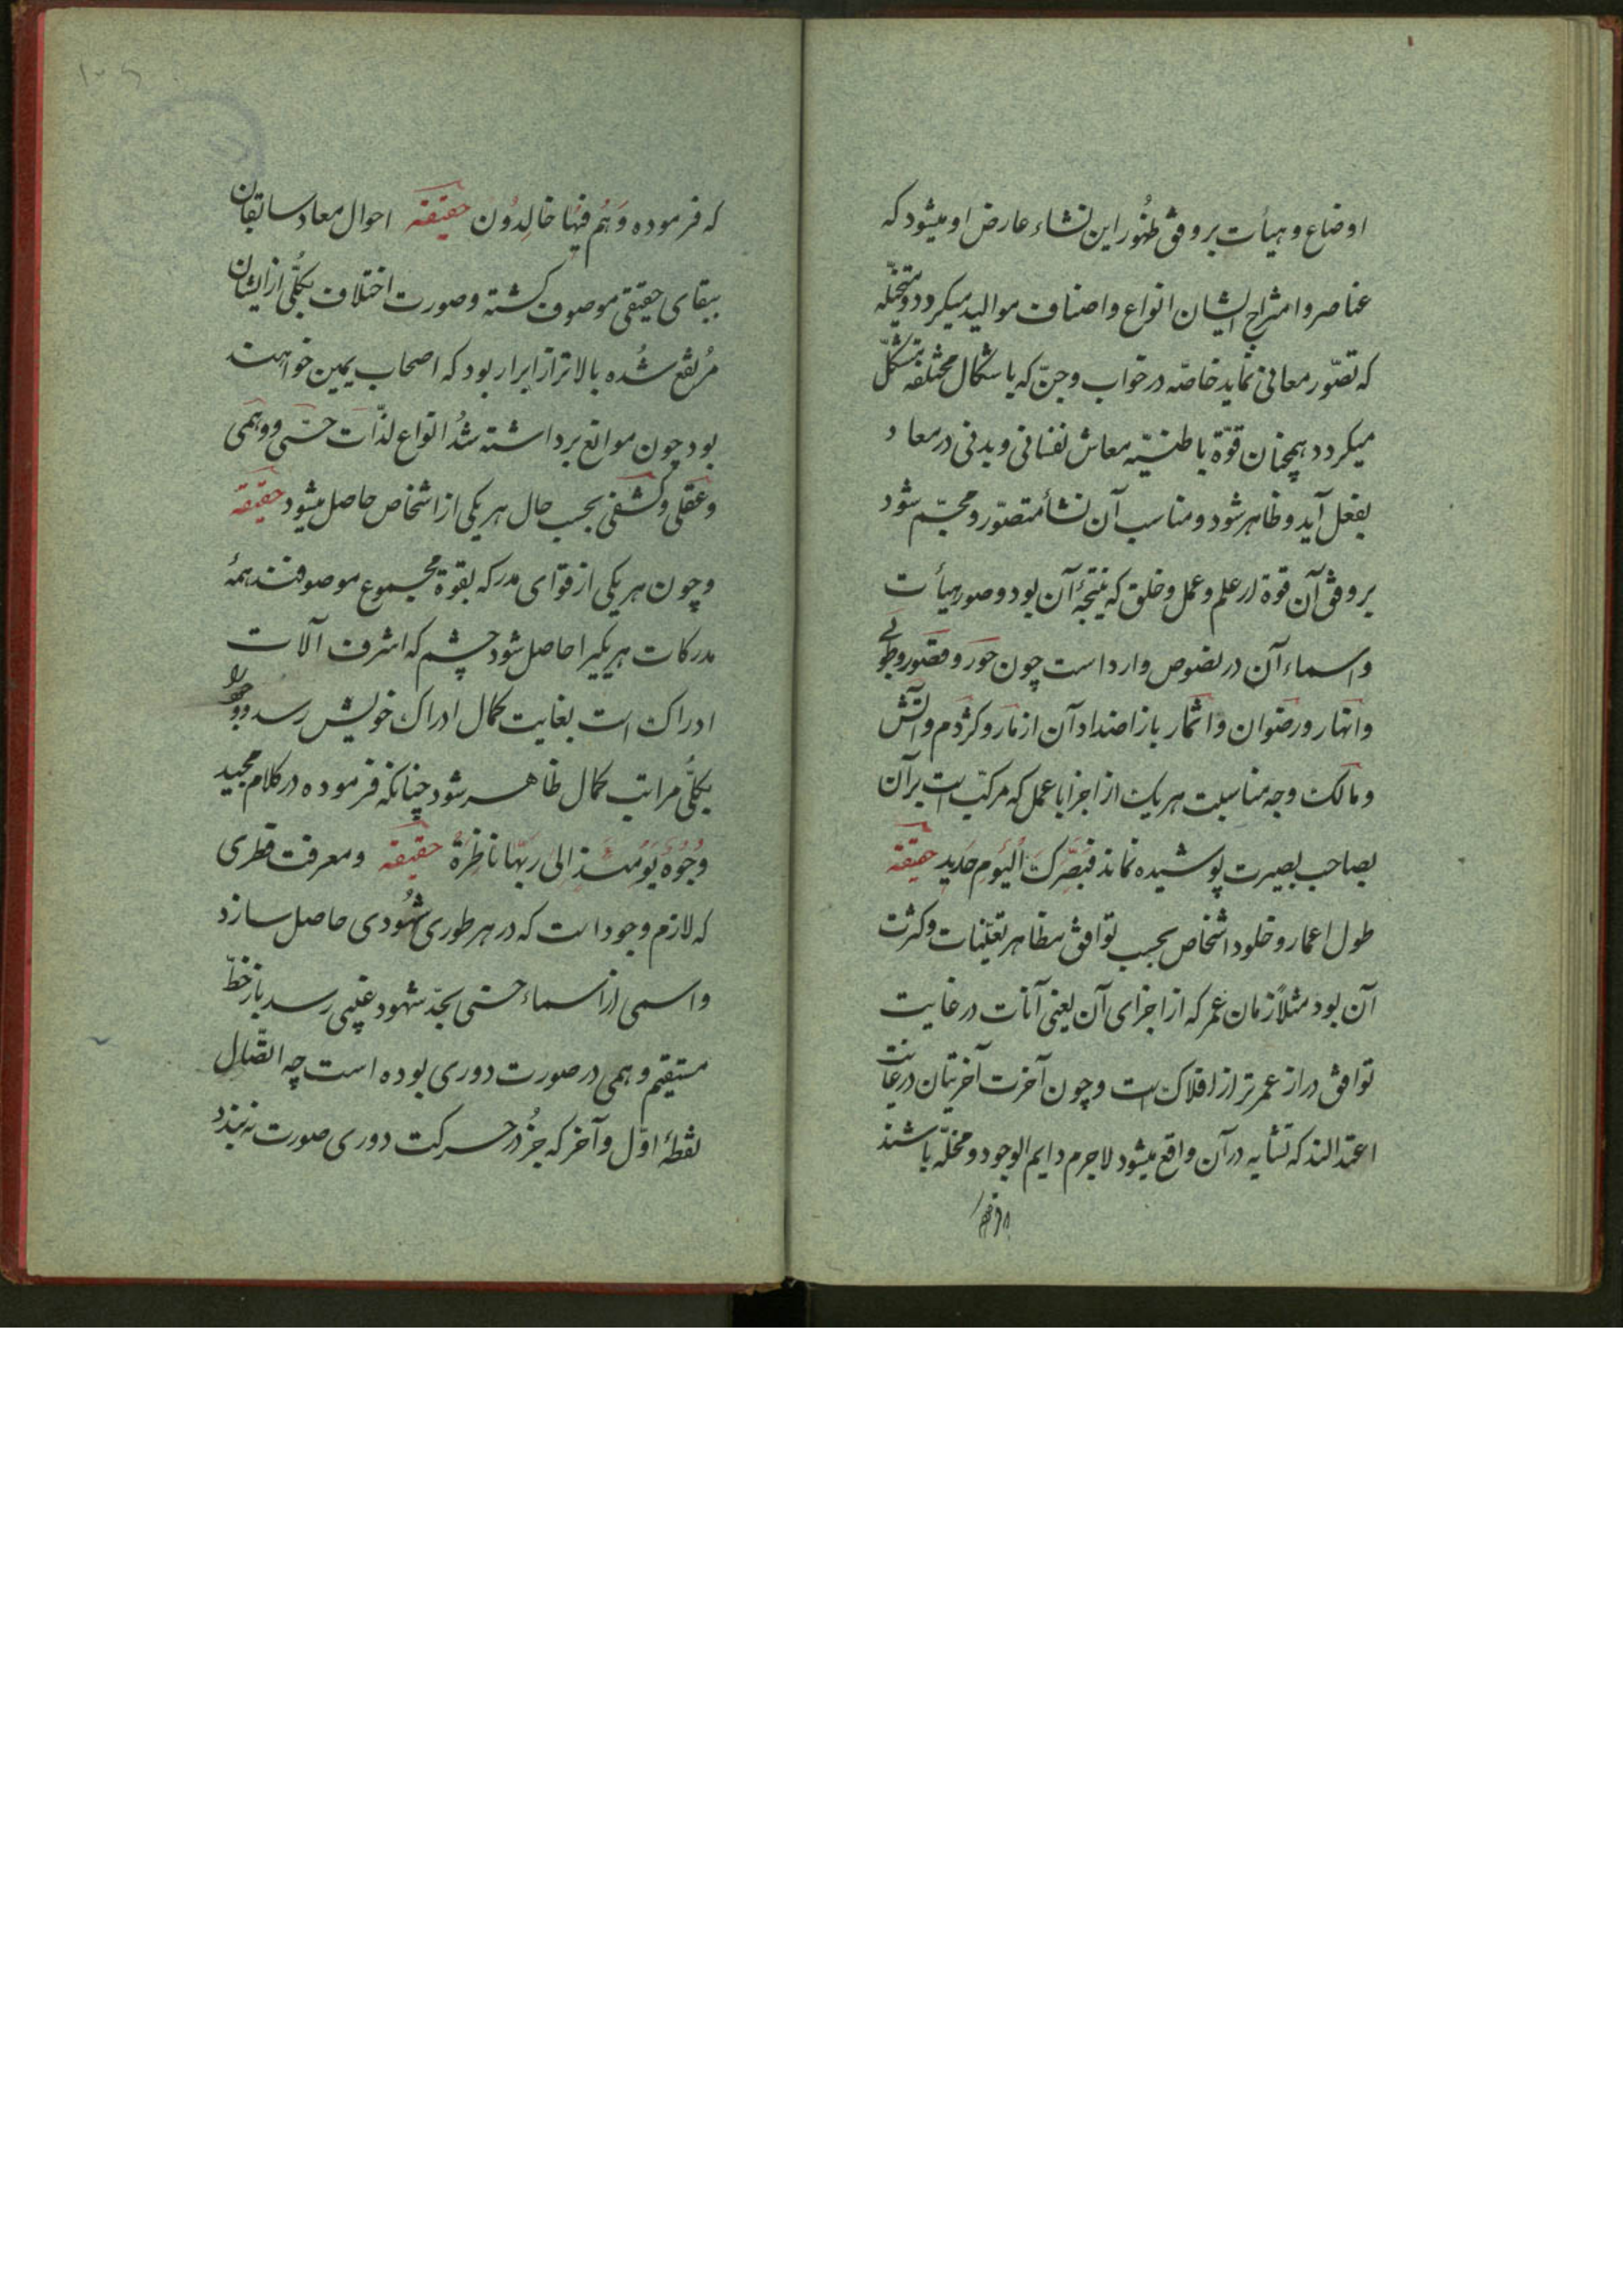 اوضاع و هیأت بر وفق ظهُور این نشاء عارض او میشود که
عناصر و امتزاج ایشان انواع و اصناف موالید میکردد و متخیّله
که تصوّر معانی نماید خاصّه در خواب و جنّ که باشکال مختلفه متشکّل
میکردد همچنان قوّة باطنیّه معاش نفسانی و بدنی در معاد
بفعل آید و ظاهر شود و مناسب آن نشأ متصوّر و مجسّم شود
بر وفق آن قوة از علم و عمل و خلق که نتیجهٔ آن بود و صور هیأت
و اسماء آن در نصوص وارد است چون حور و قصور و طوبی
و انهار و رضوان و اثمار باز اضداد آن از مار و کژدم و آتش
و مالک و وجه مناسبت هریک از اجزا با عمل که مرکّب است بر آن
بصاحب بصیرت پوشیده نماند فبَصَرکَ الْیَوم حَدید حقیقة
طول اعمار و خلود اشخاص بحسب توافق مظاهر تعیّنات و کثرت
آن بود مثلاً زمان عمر که از اجزای آن یعنی آنات در غایت
توافق دراز عمر تر از افلاک است و چون آخرت آخریتان در غایت
اعتدالند که تشابه در آن واقع میشود لاجرم دایم الوجود و مخلّد باشند
که فرموده
که فرموده وَهُم فیها خالِدُونَ حقیقة احوال معاد سابقان
ببقای حقیقی موصوف کشته و صورت اختلاف بکلّی از ایشان
مُرتفع شُده بالاتر از ابرار بود که اصحاب یمین خواهند
بود چون موانع برداشته شُد انواع لذّات حسّی و وهمی
و عقلی و کشفی بحسب حال هر یکی از اشخاص حاصل میشود حقیقة
و چون هر یکی از قوّای مدرکه بقوة مجموع موصوفند همهٔ
مدرکات هر یکیرا حاصل شود چشم که اشرف آلات
ادراک است بغایت کمال ادراک خویش رسد و
بکلّی مراتب کمال ظاهر شود چنانکه فرموده در کلام مجید
وُجُوهٌ یَوْمئذٍ الی ربّها ناظِرَةٌ حقیقة و معرفت فطری
که لازم وجود است که در هر طوری شُهُودی حاصل سازد
و اسمی از اسماء حسنی بحدّ شهود غیبی رسد باز خطّ
مستقیم وهمی در صورت دوری بوده است چه اتصّال
نقطهٔ اوّل و آخر که جُز در حرکت دوری صورت نه بندد